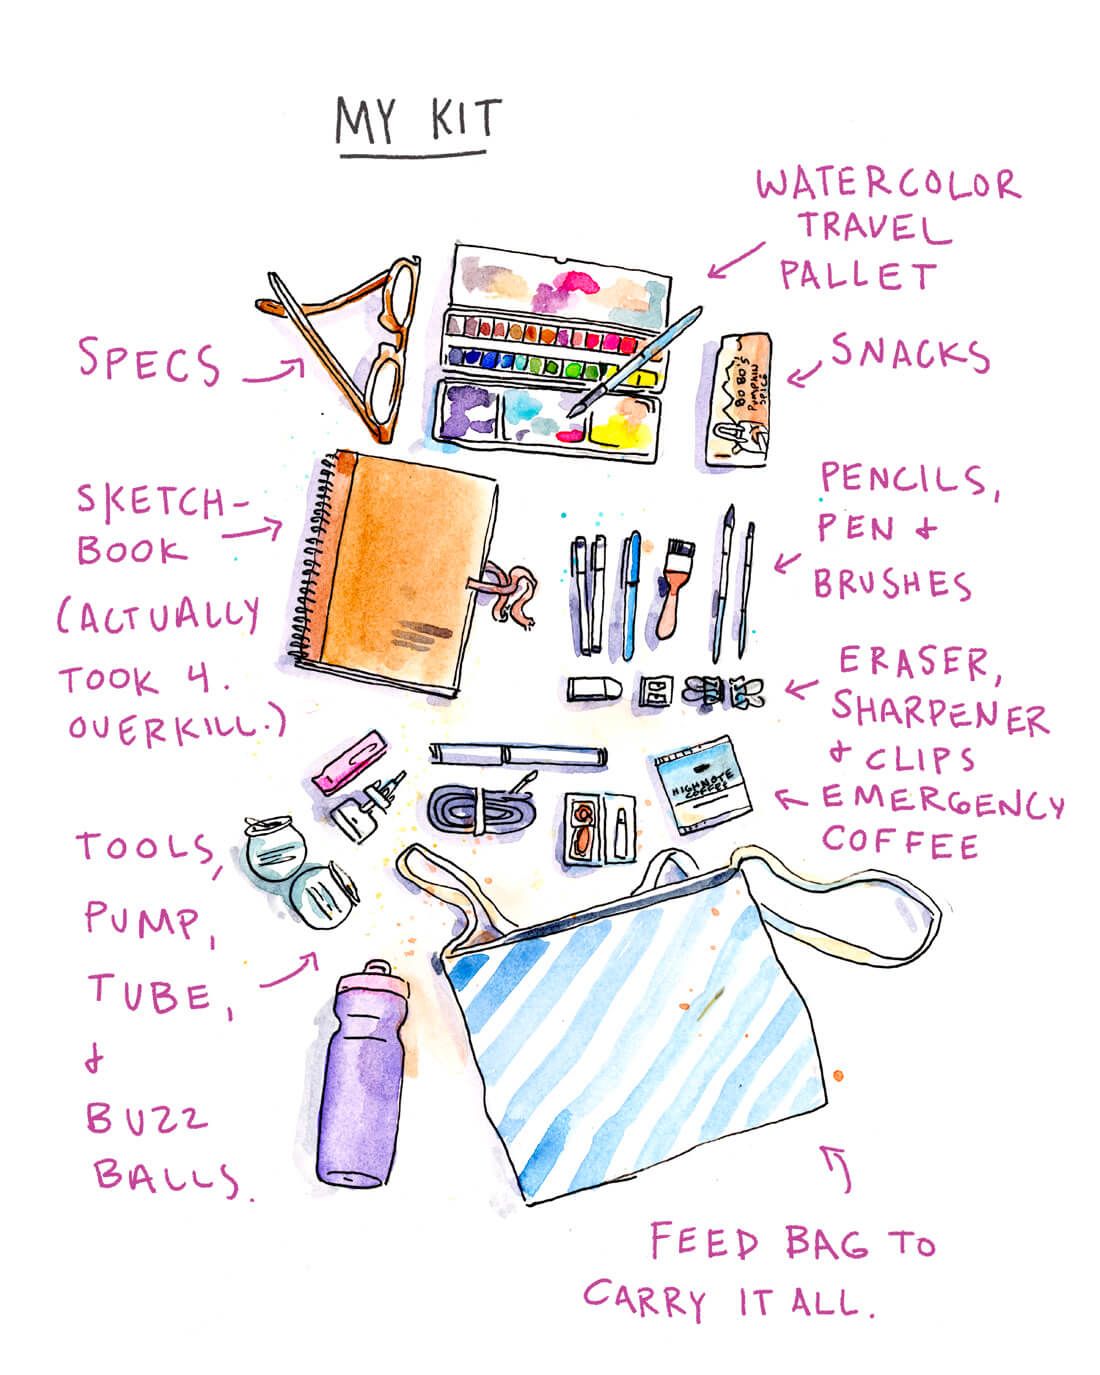 MY KIT
WATERCOLOR
TRAVEL
PALLET
SPECS
SNACKS
BOBO'S
PUMPKIN
SPICE
SKETCH-
BOOK
(ACTUALLY
TOOK 4.
OVERKILL.)
PENCILS,
PEN &
BRUSHES
ERASER,
SHARPENER
& CLIPS
EMERGENCY
COFFEE
HIGHNOTE
COFFEE
TOOLS,
PUMP,
TUBE,
&
BUZZ
BALLS.
FEED BAG TO
CARRY IT ALL.